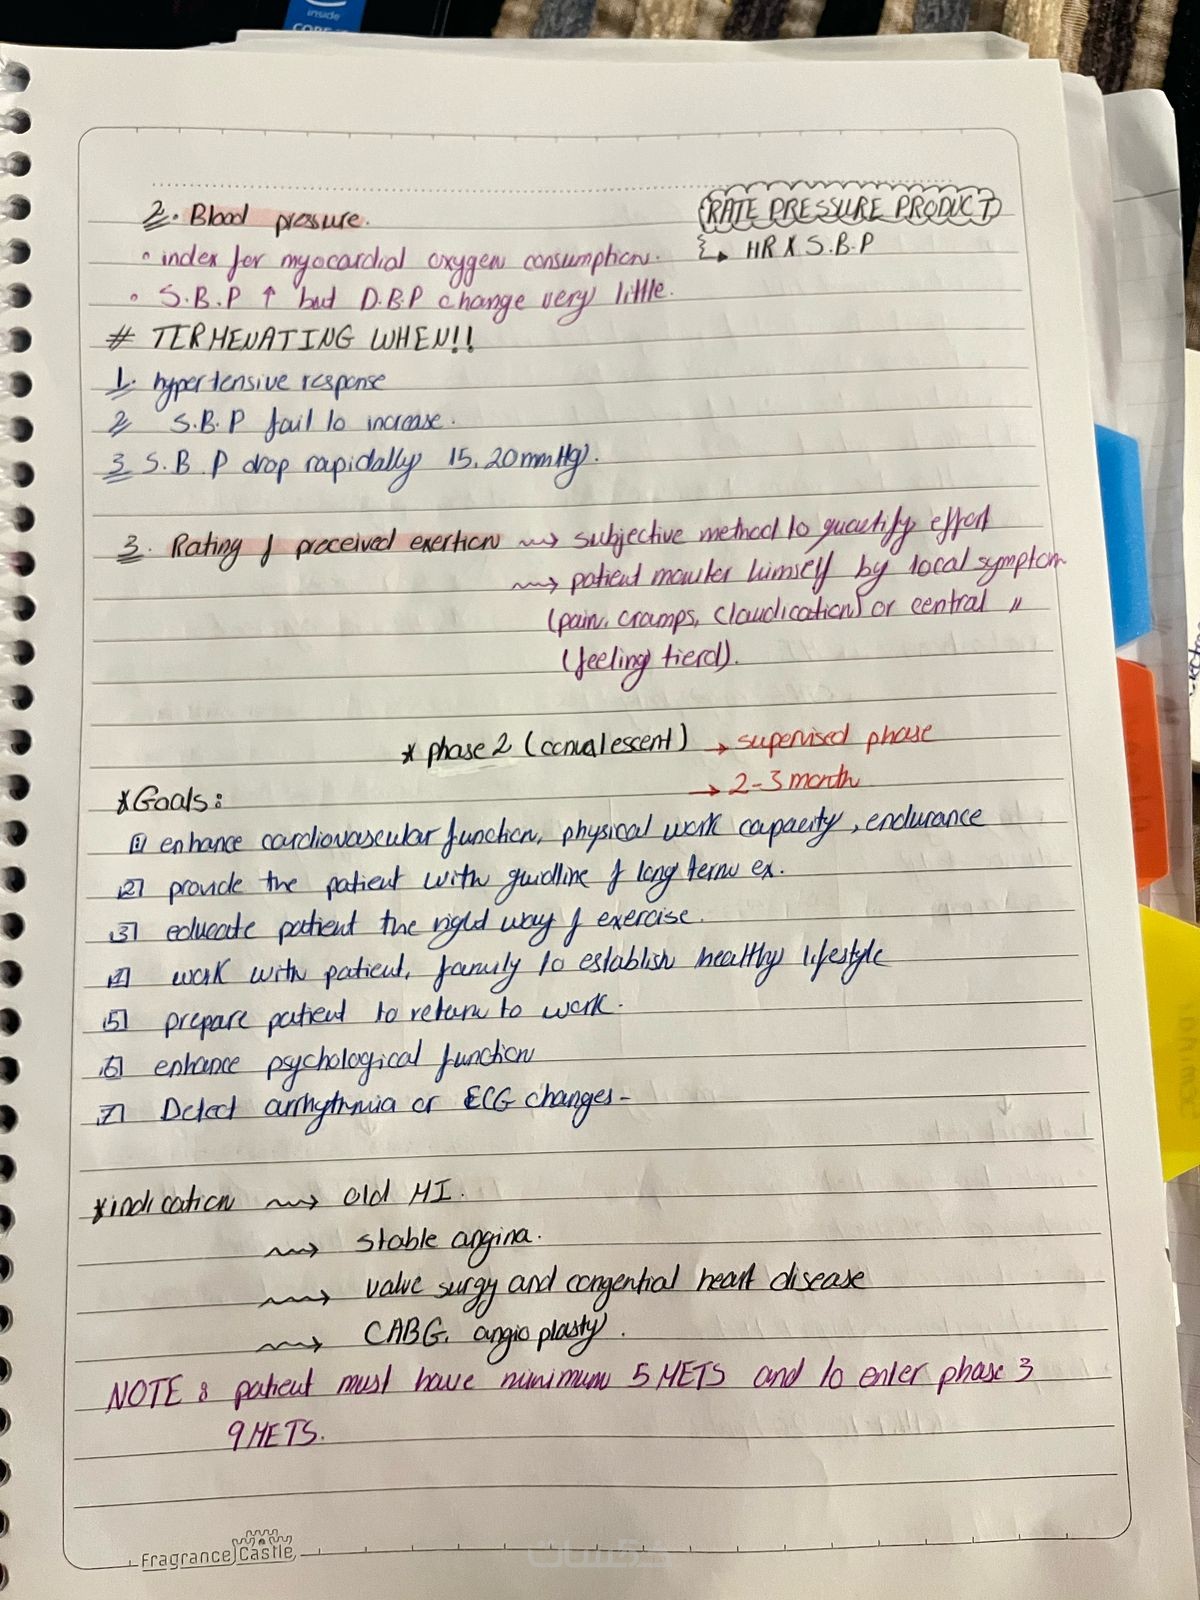 inside
CORE
2. Blood pressure.
RATE PRESSURE PRODUCT
HR X S.B.P
• index for myocardial oxygen consumption.
• S.B.P ↑ but D.B.P change very little.
# TERMENATING WHEN!!
1. hypertensive response
2 S.B.P fail to increase.
3 S.B.P drop rapidally 15, 20 mmHg.
3. Rating of preceived exertion → subjective method to quantify effort
→ patient moniter himself by local symptom
(pain, cramps, claudication) or central "
(feeling tierd).
* phase 2 (convalescent) → supervised phase
→ 2-3 month
*Goals:
1 enhance cardiovascular function, physical work capacity, endurance
2 provide the patient with guidline of long term ex.
3 educate patient the right way of exercise.
4 work with patient, family to establish healthy lifestyle
5 prepare patient to return to work.
6 enhance psychological function
7 Detect arrhythmia or ECG changes-
*indication → old MI.
→ stable angina.
→ valve surgy and congential heart disease
→ CABG, angio plasty.
NOTE: patient must have minimum 5 METS and to enter phase 3
9 METS.
Fragrance Castle